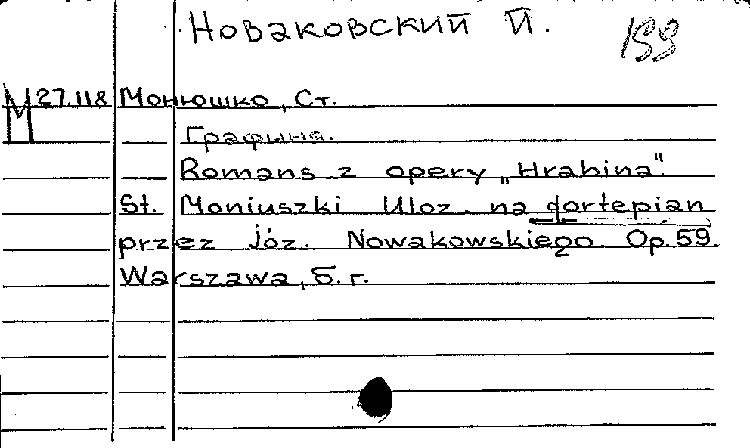 Новаковский Й.
М 27.118 Монюшко, Ст.
Графиня.
Romans z opery „Hrabina".
St. Moniuszki Uloz. na fortepian
przez Józ. Nowakowskiego Op. 59
Warszawa, б. г.